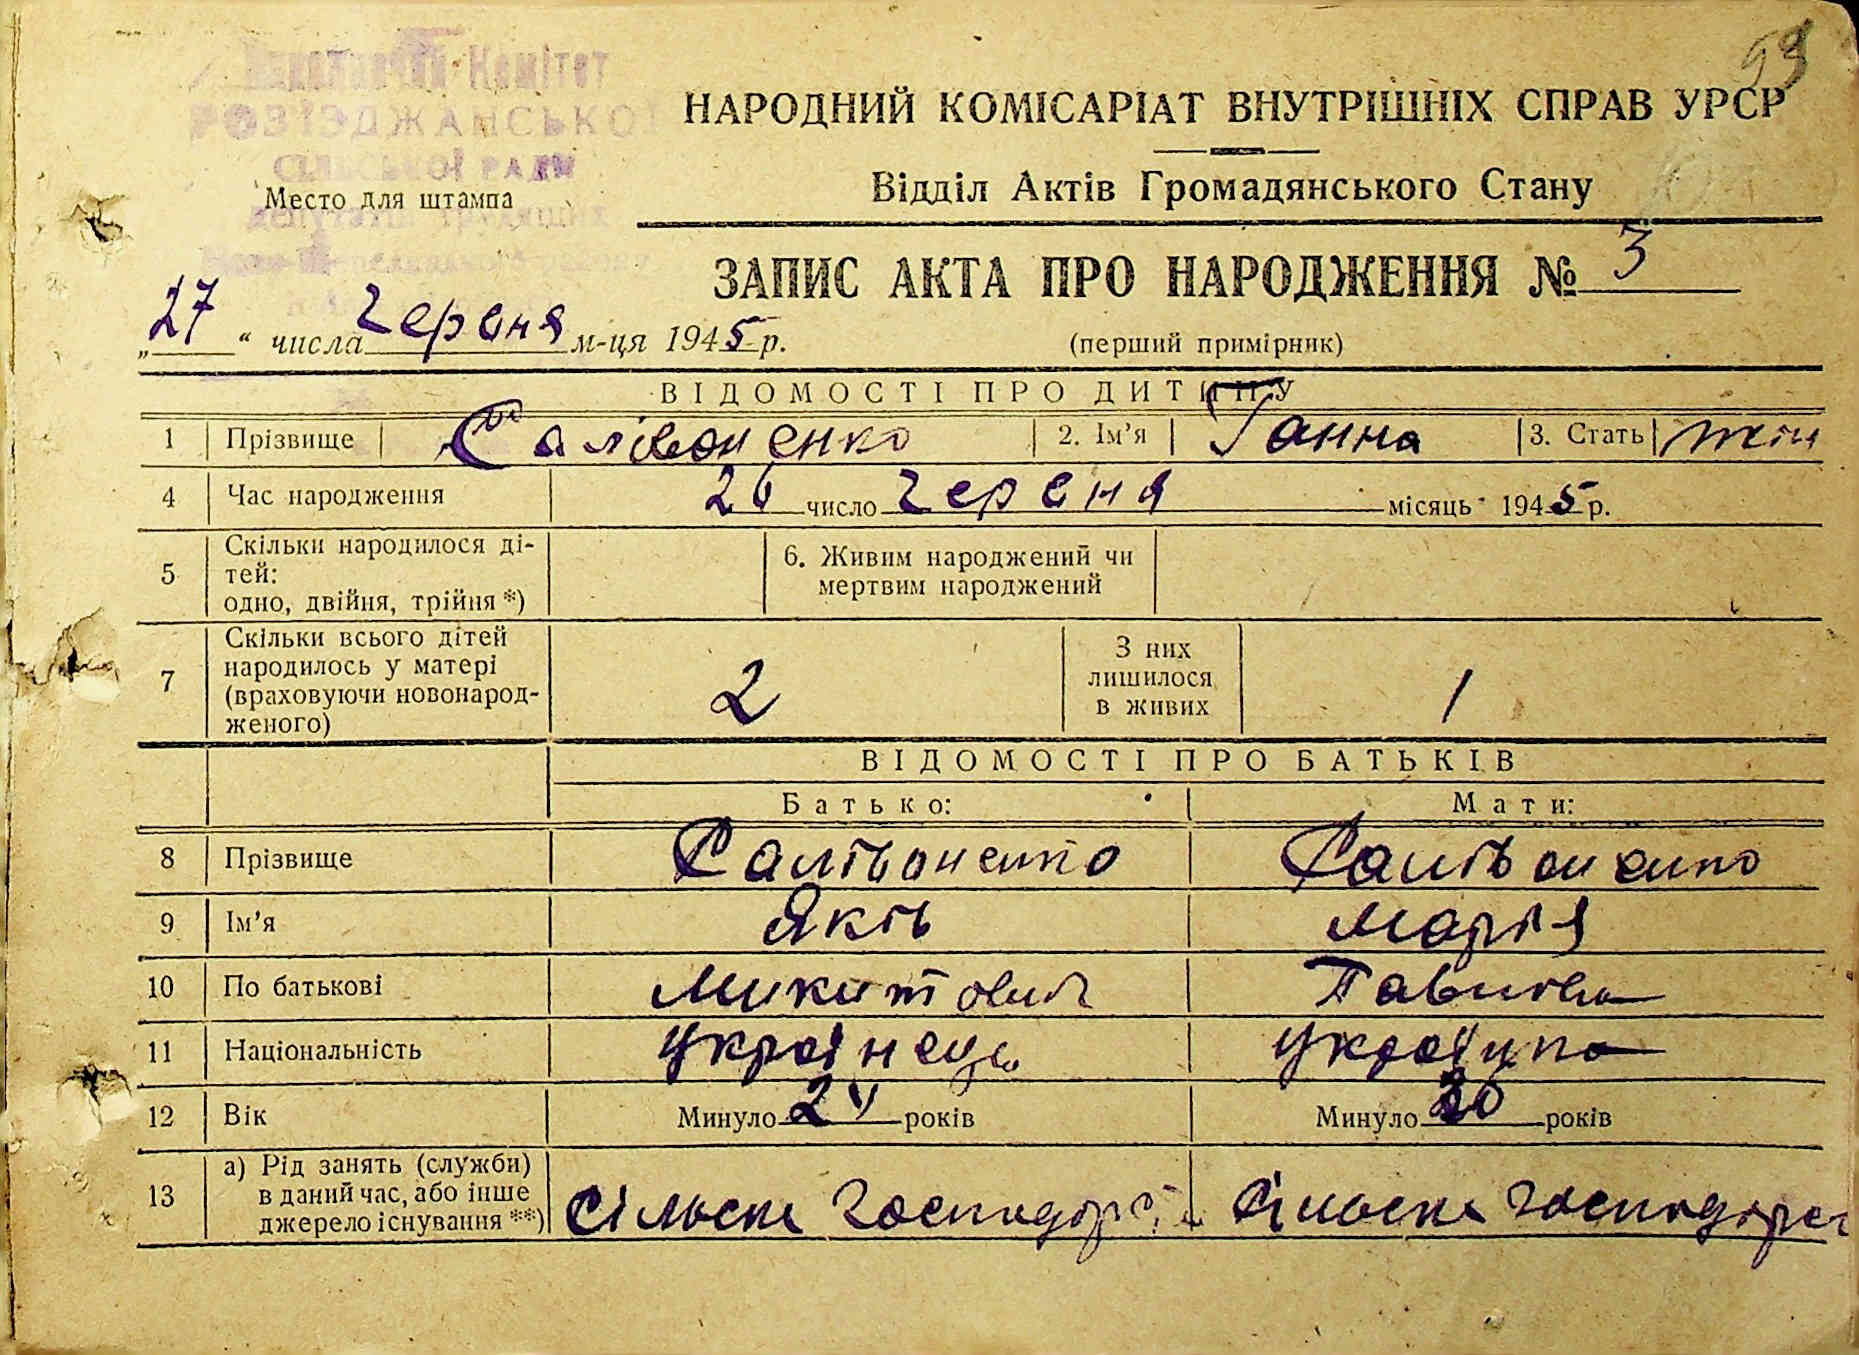 99
Виконавчий Комітет
РОЗ'ЇЗДЖАНСЬКОЇ
СІЛЬСЬКОЇ РАДИ
депутатів трудящих
Место для штампа
НАРОДНИЙ КОМІСАРІАТ ВНУТРІШНІХ СПРАВ УРСР
Відділ Актів Громадянського Стану
ЗАПИС АКТА ПРО НАРОДЖЕННЯ № 3
„27“ числа Червня м-ця 1945 р. (перший примірник)
ВІДОМОСТІ ПРО ДИТИНУ
1 Прізвище Салівоненко 2. Ім'я Ганна 3. Стать жін
4 Час народження 26 число Червня місяць 1945 р.
5 Скільки народилося ді-
тей:
одно, двійня, трійня *)
6. Живим народжений чи
мертвим народжений
7 Скільки всього дітей
народилось у матері
(враховуючи новонарод-
женого)
2
З них
лишилося
в живих
1
ВІДОМОСТІ ПРО БАТЬКІВ
Батько: Мати:
8 Прізвище Салівоненко Салівоненко
9 Ім'я Яків Марія
10 По батькові Микитович Павлівна
11 Національність Українець Українка
12 Вік Минуло років Минуло 30 років
13 а) Рід занять (служби)
в даний час, або інше
джерело існування **)
сільське господарст сільське господарст